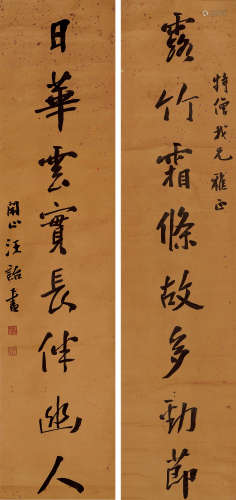 特僧我兄雅正
露竹霜條故多勁節
日華雲實長伴幽人
閬山汪詒書